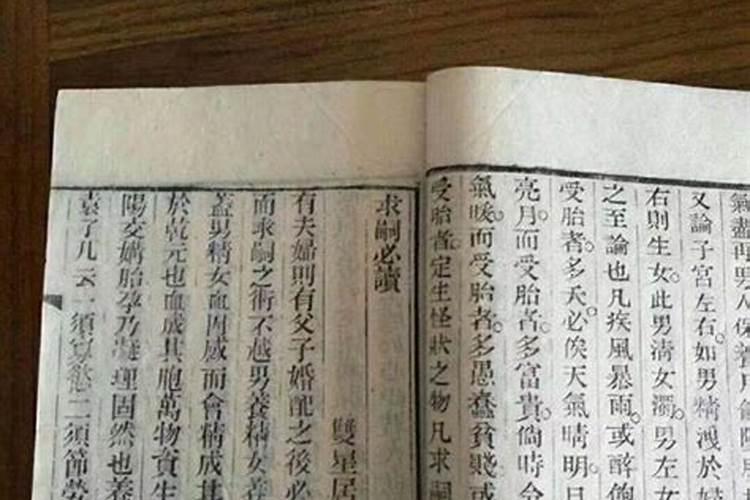 氣盡再男
又論子宮左右。如男精洩於婦
右則生女。此男清女濁。男左女
之至論也凡疾風暴雨。或醉飽
受胎者。多夭。必俟天氣晴明。日
亮月而受胎者。多富貴。倘時令
氣暖。而受胎者。多愚蠢貧賤。或
受胎者。定生怪狀之物凡求嗣
求嗣必讀
雙星居
有夫婦則有父子婚配之後必
而求嗣之術不越男養精女養
蓋男精女血因感而會精成其
於乾元也血成其胞萬物資生
陽交媾胎孕乃凝理固然也養
袁了凡云一須寡慾二須節勞